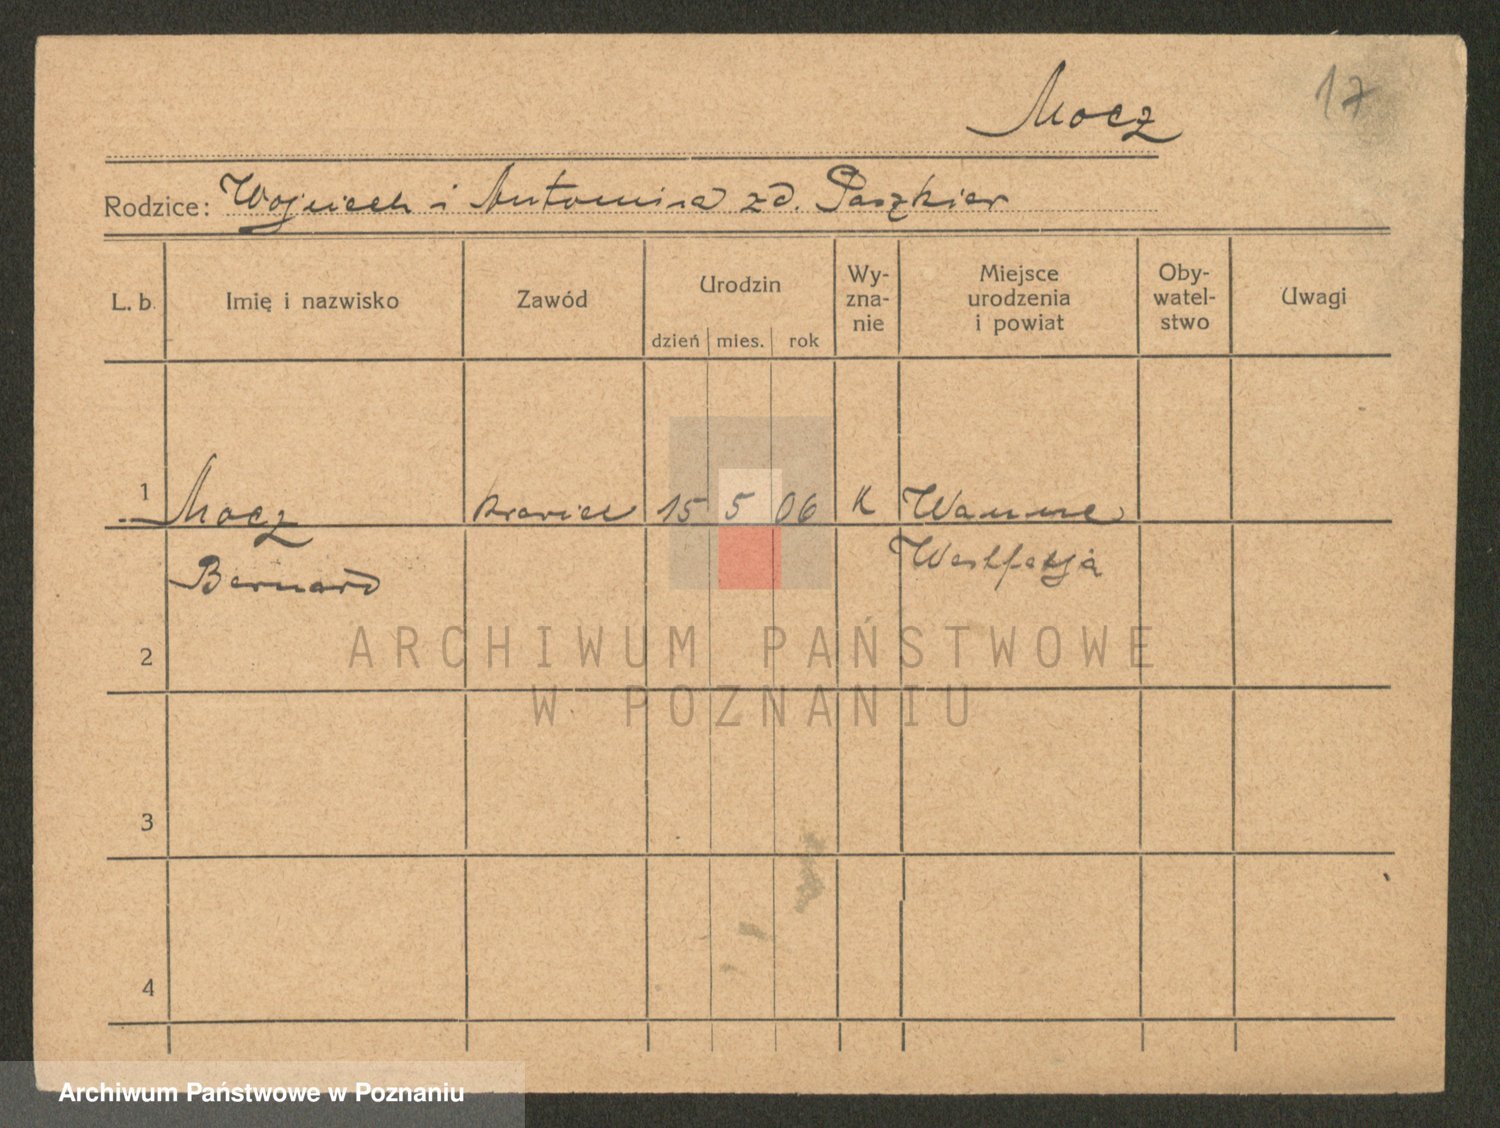 Mocz
17
Rodzice: Wojciech i Antonina zd. Paszkier
L. b. Imię i nazwisko Zawód Urodzin Wy-zna-nie Miejsce urodzenia i powiat Oby-watel-stwo Uwagi
dzień mies. rok
1 Mocz krawiec 15 5 06 K Wanne
Bernard Westfalja
2
ARCHIWUM PAŃSTWOWE
W POZNANIU
3
4
Archiwum Państwowe w Poznaniu